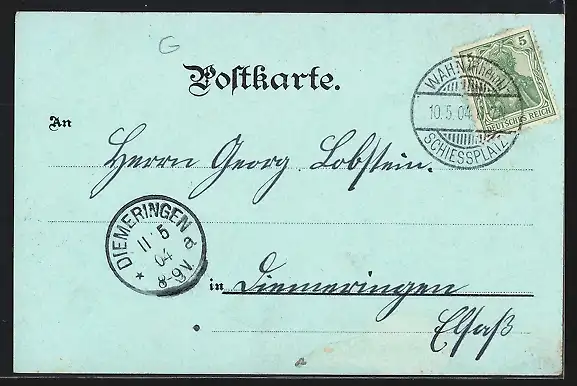 G
Postkarte.
5
DEUTSCHES REICH
WAHN
10.5.04
SCHIESSPLATZ
An
Herrn Georg Lobstein.
DIEMERINGEN
11 5
04
8-9V.
a
in Diemeringen
Elsaß